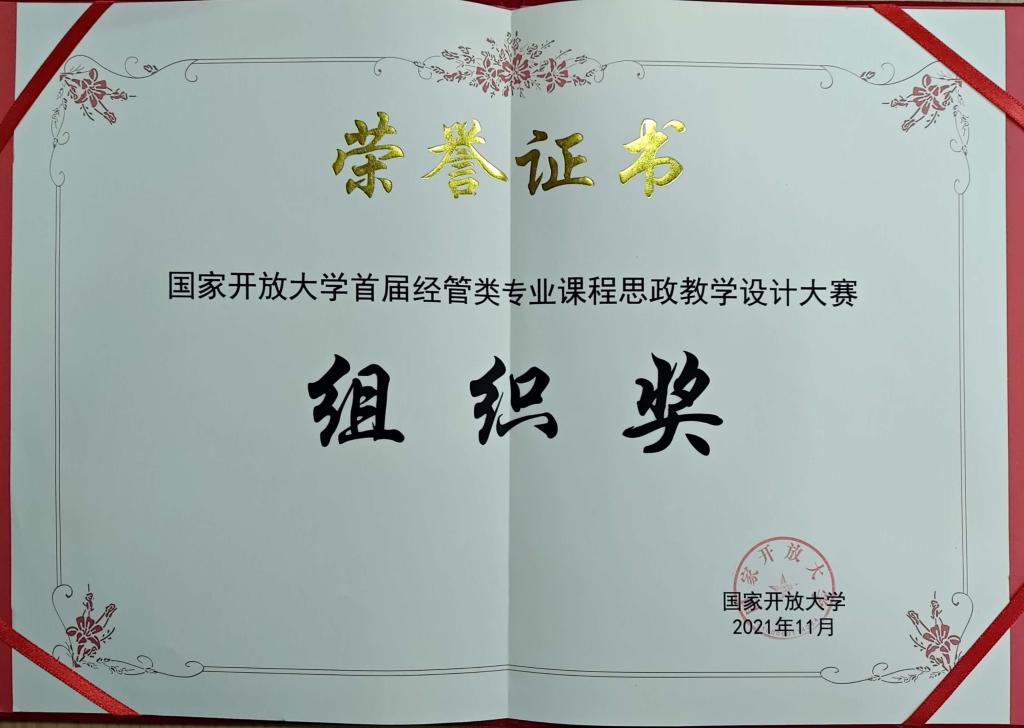 荣誉证书
国家开放大学首届经管类专业课程思政教学设计大赛
组织奖
国家开放大学
国家开放大学
2021年11月